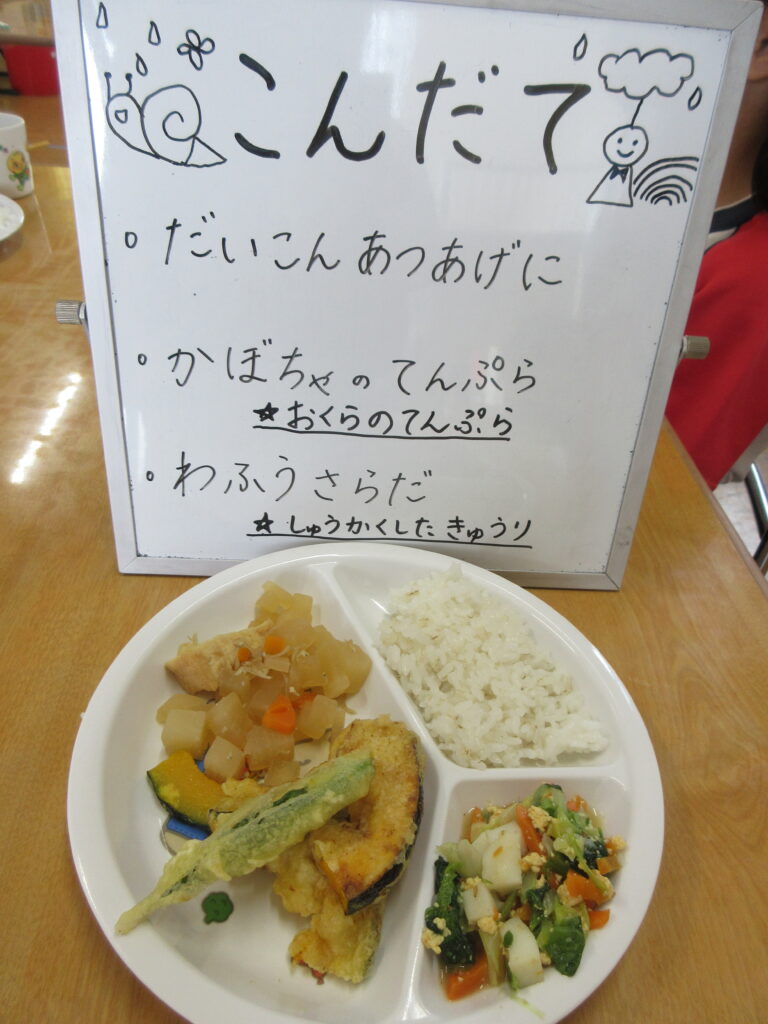 こんだて
○ だいこんあつあげに
○ かぼちゃのてんぷら
☆おくらのてんぷら
○ わふうさらだ
☆しゅうかくしたきゅうり